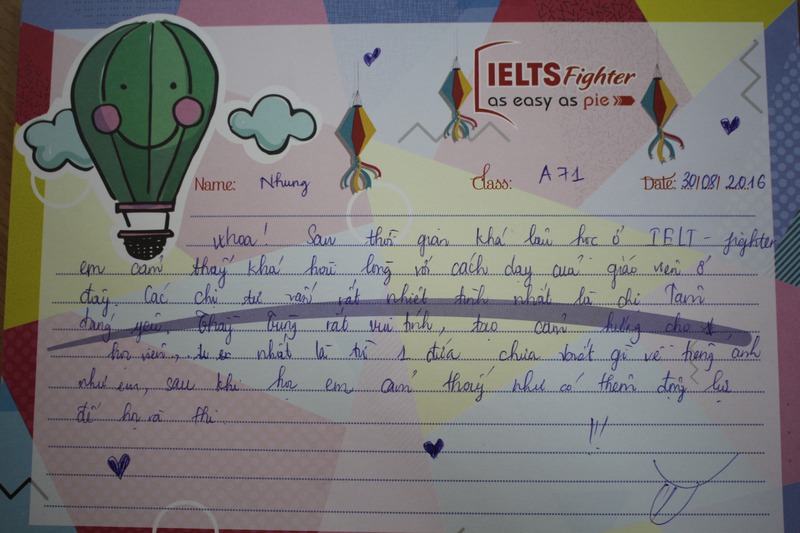 IELTS Fighter
as easy as pie
Name: Nhung Class: A71 Date: 30/08/2016
Whoa! Sau thời gian khá lâu học ở IELT - fighter
em cảm thấy khá hài lòng với cách dạy của giáo viên ở
đây. Các chị tư vấn rất nhiệt tình nhất là chị Tâm
đáng yêu. Thầy Trung rất vui tính, tạo cảm hứng cho
học viên, nhất là từ 1 đứa chưa biết gì về tiếng anh
như em, sau khi học em cảm thấy như có thêm động lực
để học và thi.
!!!